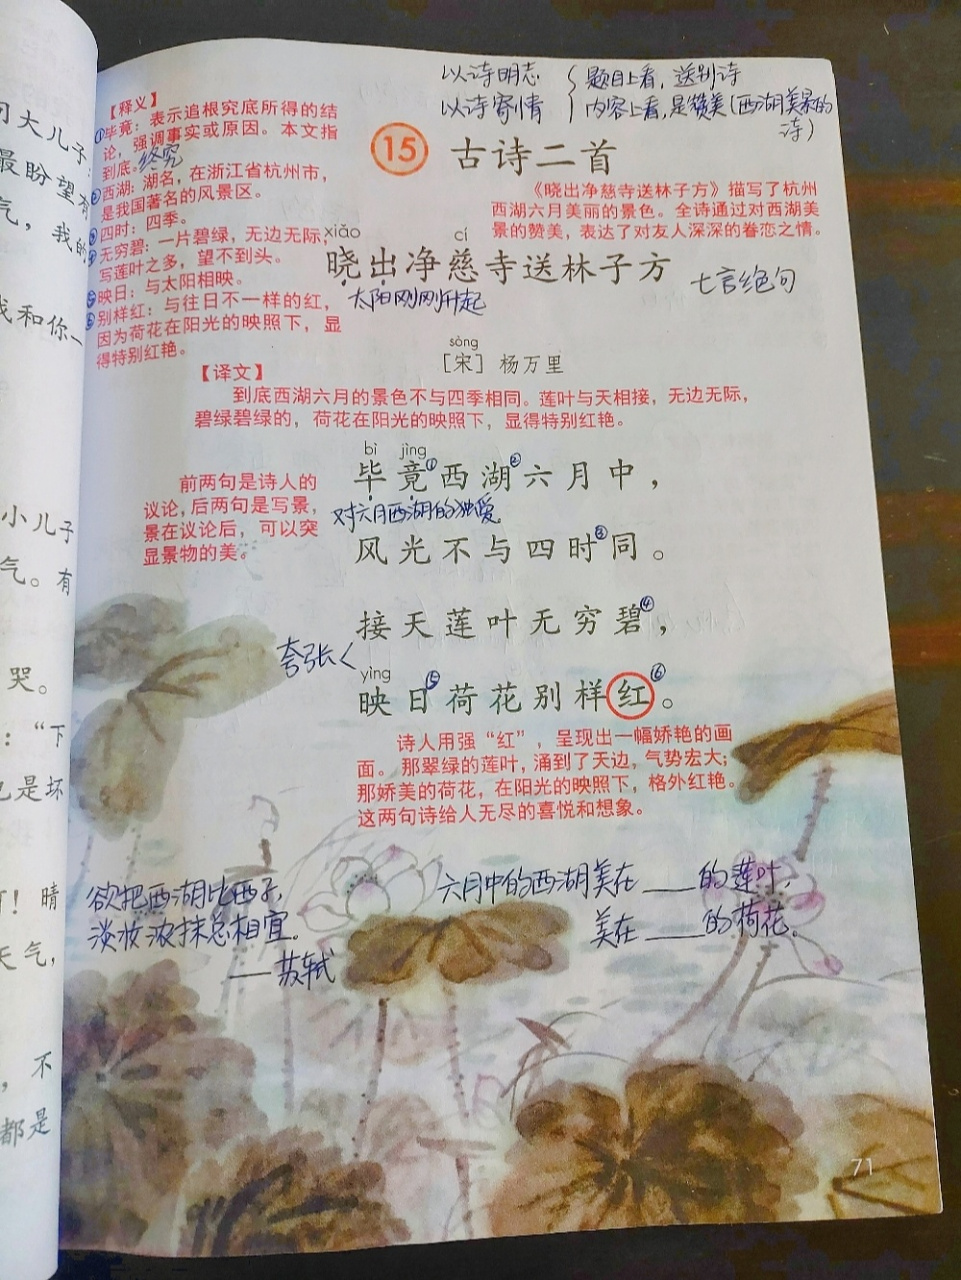 司大儿子:
最盼望有
气，我的
我和你一
小儿子
气。有
哭。
：“下
也是坏
！晴
天气，
，不
都是
以诗明志
以诗寄情
题目上看，送别诗
内容上看，是赞美(西湖美景的
诗)
【释义】
①毕竟：表示追根究底所得的结
论，强调事实或原因。本文指
到底。终究
②西湖：湖名，在浙江省杭州市，
是我国著名的风景区。
③四时：四季。
④无穷碧：一片碧绿，无边无际，
写莲叶之多，望不到头。
⑤映日：与太阳相映。
⑥别样红：与往日不一样的红，
因为荷花在阳光的映照下，显
得特别红艳。
15 古诗二首
《晓出净慈寺送林子方》描写了杭州
西湖六月美丽的景色。全诗通过对西湖美
景的赞美，表达了对友人深深的眷恋之情。
xiǎo cí
晓出净慈寺送林子方
七言绝句
太阳刚刚升起
sòng
［宋］杨万里
【译文】
到底西湖六月的景色不与四季相同。莲叶与天相接，无边无际，
碧绿碧绿的，荷花在阳光的映照下，显得特别红艳。
前两句是诗人的
议论，后两句是写景，
景在议论后，可以突
显景物的美。
bì jìng
毕竟①西湖②六月中，
对六月西湖的独爱
风光不与四时③同。
接天莲叶无穷碧④，
夸张
yìng
映日⑤荷花别样红⑥。
诗人用强“红”，呈现出一幅娇艳的画
面。那翠绿的莲叶，涌到了天边，气势宏大；
那娇美的荷花，在阳光的映照下，格外红艳。
这两句诗给人无尽的喜悦和想象。
欲把西湖比西子，
淡妆浓抹总相宜。
——苏轼
六月中的西湖美在____的莲叶，
美在____的荷花。
71